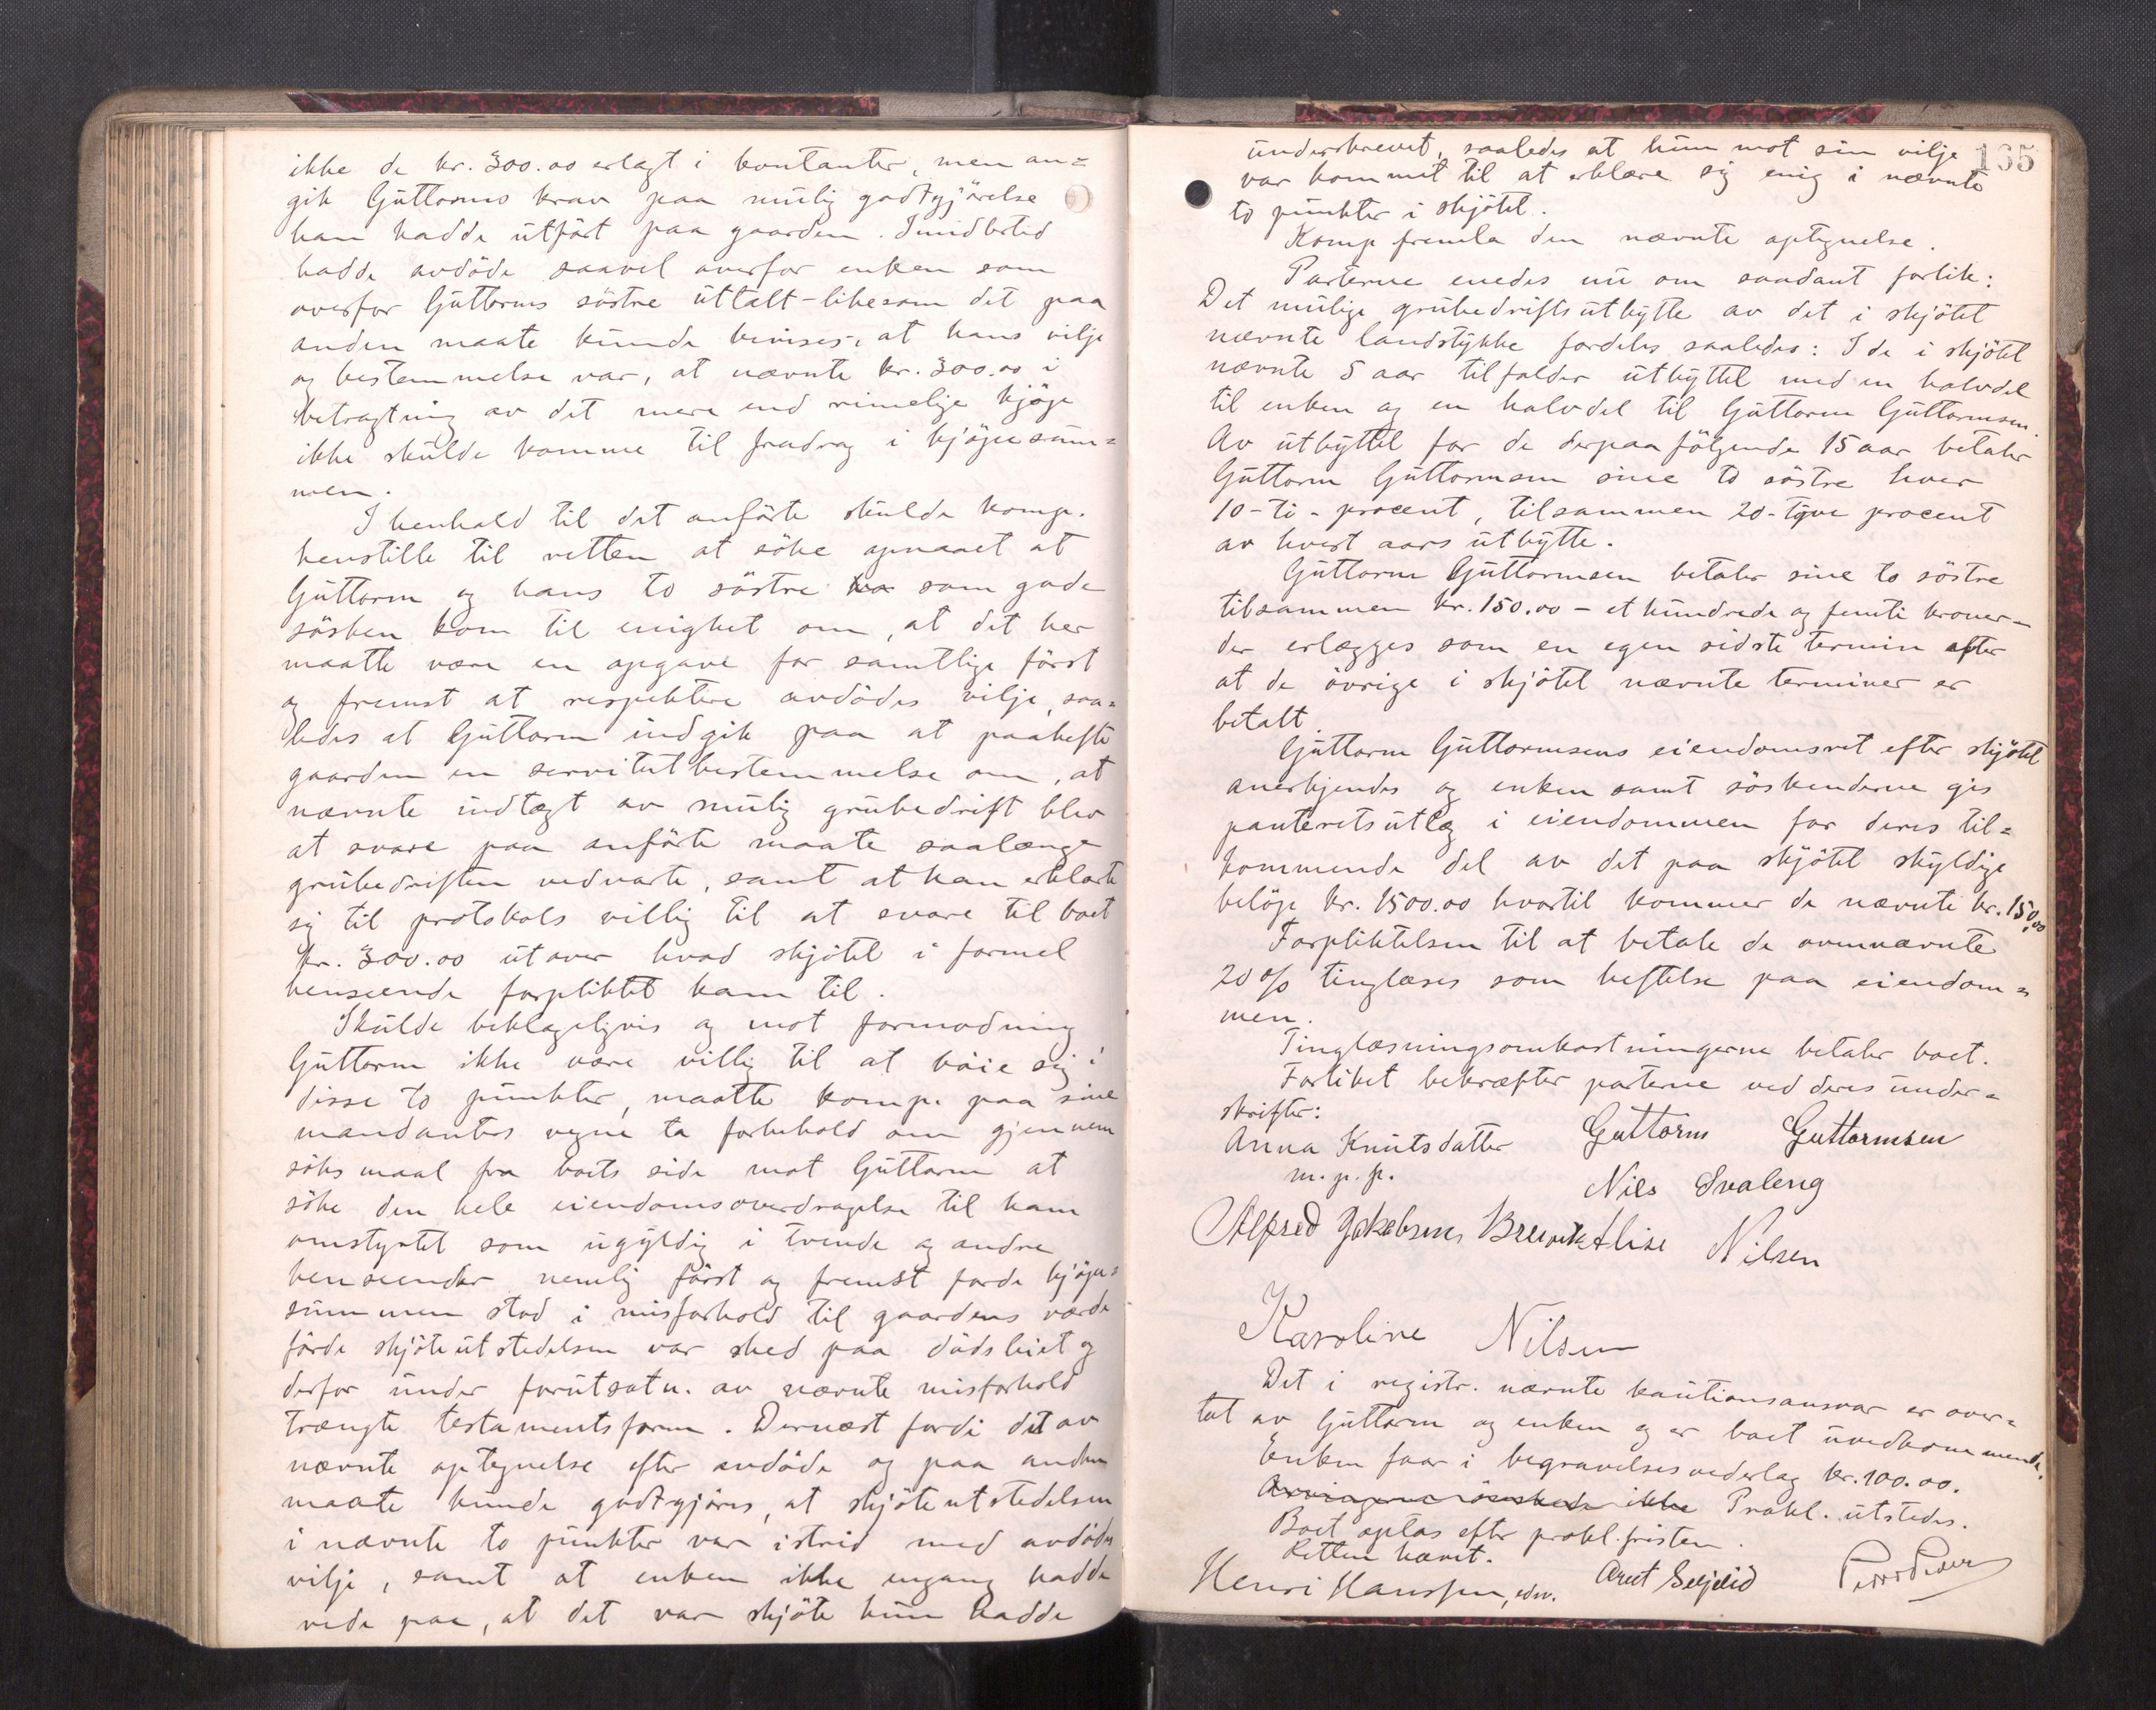 ikke de kr. 300.00 erlagt i kontanter, men an=
gik Guttorms krav paa mulig godtgjörelse
han hadde utfört paa gaarden. Imidlertid
hadde avdöde saavel overfor enken som
overfor Guttorms söstre uttalt - likesom det paa
anden maate kunde bevises, at hans vilje
og bestemmelse var, at nævnte kr. 300.00 i
betragtning av det mere end rimelige kjöp
ikke skulde komme til fradrag i kjöpesum=
men.
I henhold til det anförte skulde komp.
henstille til retten at söke opnaaet at
Guttorm og hans to söstre som gode
sösken kom til enighet om, at det her
maatte være en opgave for samtlige först
og fremst at respektere avdödes vilje, saa=
ledes at Guttorm indgik paa at paahefte
gaarden en servitutbestemmelse om, at
nævnte indtægt av mulig grubedrift blev
at svare paa anförte maate saalænge
grubedriften vedvarte, samt at han erklærte
sig til protokols villig til at svare til boet
kr. 300.00 utover hvad skjötet i formel
henseende forpliktet ham til.
Skulde beklageligvis og mot formodning
Guttorm ikke være villig til at böie sig i
disse to punkter, maatte komp. paa sine
mandanters vegne ta forbehold om gjennem
söksmaal fra boets side mot Guttorm at
söke den hele eiendomsoverdragelse til ham
omstyrtet som ugyldig i tvende og andre
henseender nemlig först og fremst fordi kjöpe=
summen stod i misforhold til gaardens værdi
fördi skjöteutstedelsen var sked paa dödsleiet og
derfor under forutsatn. av nævnte misforhold
trængte testamentsform. Dernæst fordi det av
nævnte optegnelse efter avdöde og paa anden
maate kunde godtgjöres, at skjöteutstedelsen
i nævnte to punkter var i strid med avdödes
vilje, samt at enken ikke engang hadde
rede paa, at det var skjöte hun hadde
165
underskrevet, saaledes at hun mot sin vilje
var kommet til at erklære sig enig i nævnte
to punkter i skjötet.
Komp fremla den nævnte optegnelse.
Parterne enedes nu om saadant forlik:
Det mulige grubedriftsutbytte av det i skjötet
nævnte landstykke fordeles saaledes: I de i skjötet
nævnte 5 aar tilfalder utbyttet med en halvdel
til enken og en halvdel til Guttorm Guttormsen.
Av utbyttet for de derpaa fölgende 15 aar betaler
Guttorm Guttormsen sine to söstre hver
10 - ti - procent, tilsammen 20 - tyve procent
av hvert aars utbytte.
Guttorm Guttormsen betaler sine to söstre
tilsammen kr. 150.00 - et hundrede og femti kroner -
der erlægges som en egen sidste termin efter
at de övrige i skjötet nævnte terminer er
betalt.
Guttorm Guttormsens eiendomsret efter skjötet
anerkjendes og enken samt söskenderne gis
panteretsutlæg i eiendommen for deres til=
kommende del av det paa skjötet skyldige
belöp kr. 1500.00 hvortil kommer de nævnte kr. 150,00
Forpliktelsen til at betale de ovennævnte
20 % tinglæses som heftelse paa eiendom=
men.
Tinglæsningsomkostningerne betaler boet.
Forliket bekræfter parterne ved deres under=
skrifter:
Anna Knutsdatter Guttorm Guttormsen
m. p. p. Nils Svaleng
Alfred Jakobsen Alise Nilsen
Karoline Nilsen
Det i registr. nævnte kautionsansvar er over=
tat av Guttorm og enken og er boet uvedkommende.
Enken faar i begravelsesvederlag kr. 100.00.
Arvingerne önskede ikke Prokl. utstedes.
Boet optas efter prokl.fristen.
Retten hævet.
Henri Hanssen, edsv. Arnt Seljelid